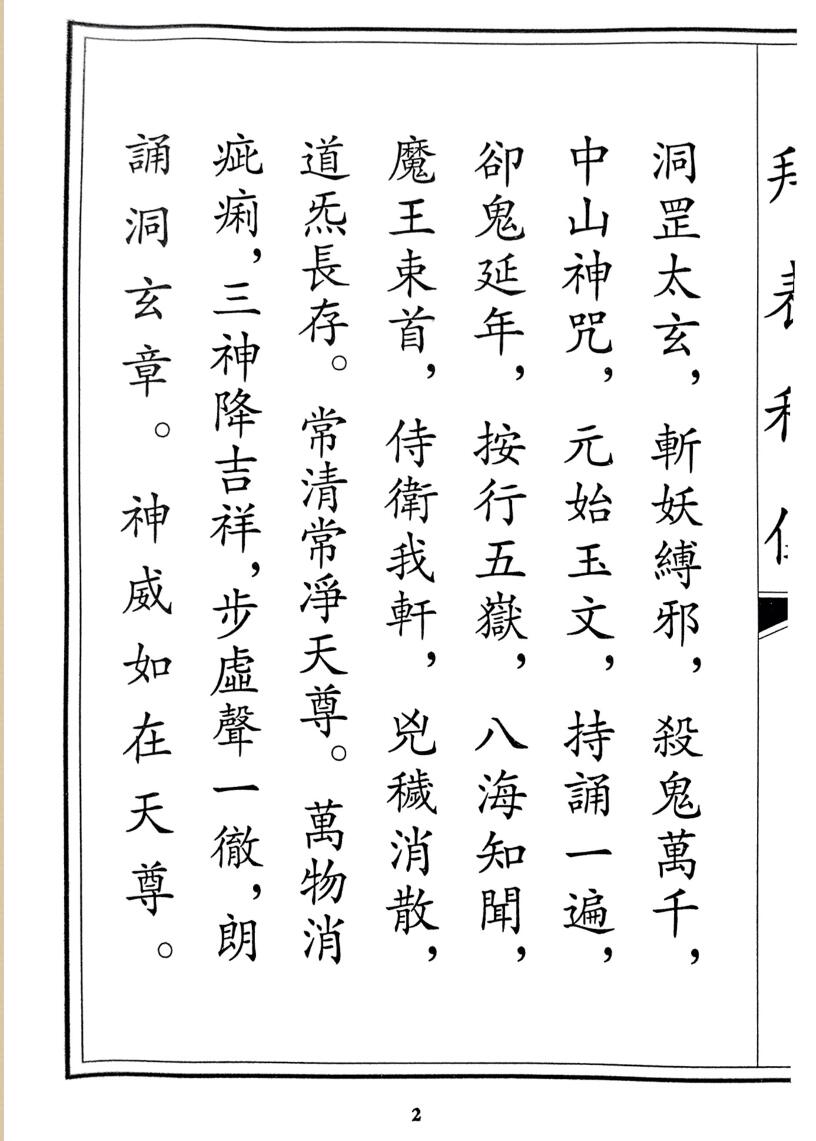 洞罡太玄，斬妖縛邪，殺鬼萬千，
中山神咒，元始玉文，持誦一遍，
卻鬼延年，按行五嶽，八海知聞，
魔王束首，侍衛我軒，兇穢消散，
道炁長存。常清常淨天尊。萬物消
疵痢，三神降吉祥，步虛聲一徹，朗
誦洞玄章。神威如在天尊。
2